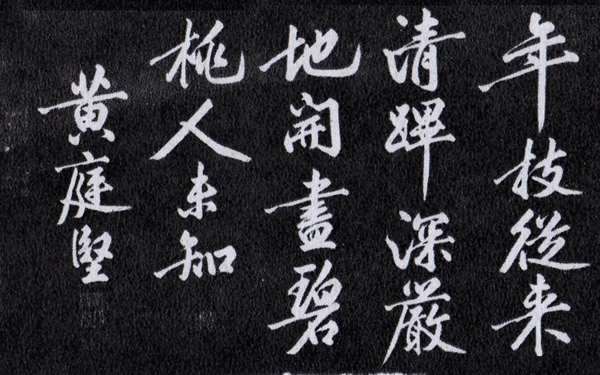 年枝從来
清蹕深嚴
地開盡碧
桃人未知
黄庭堅